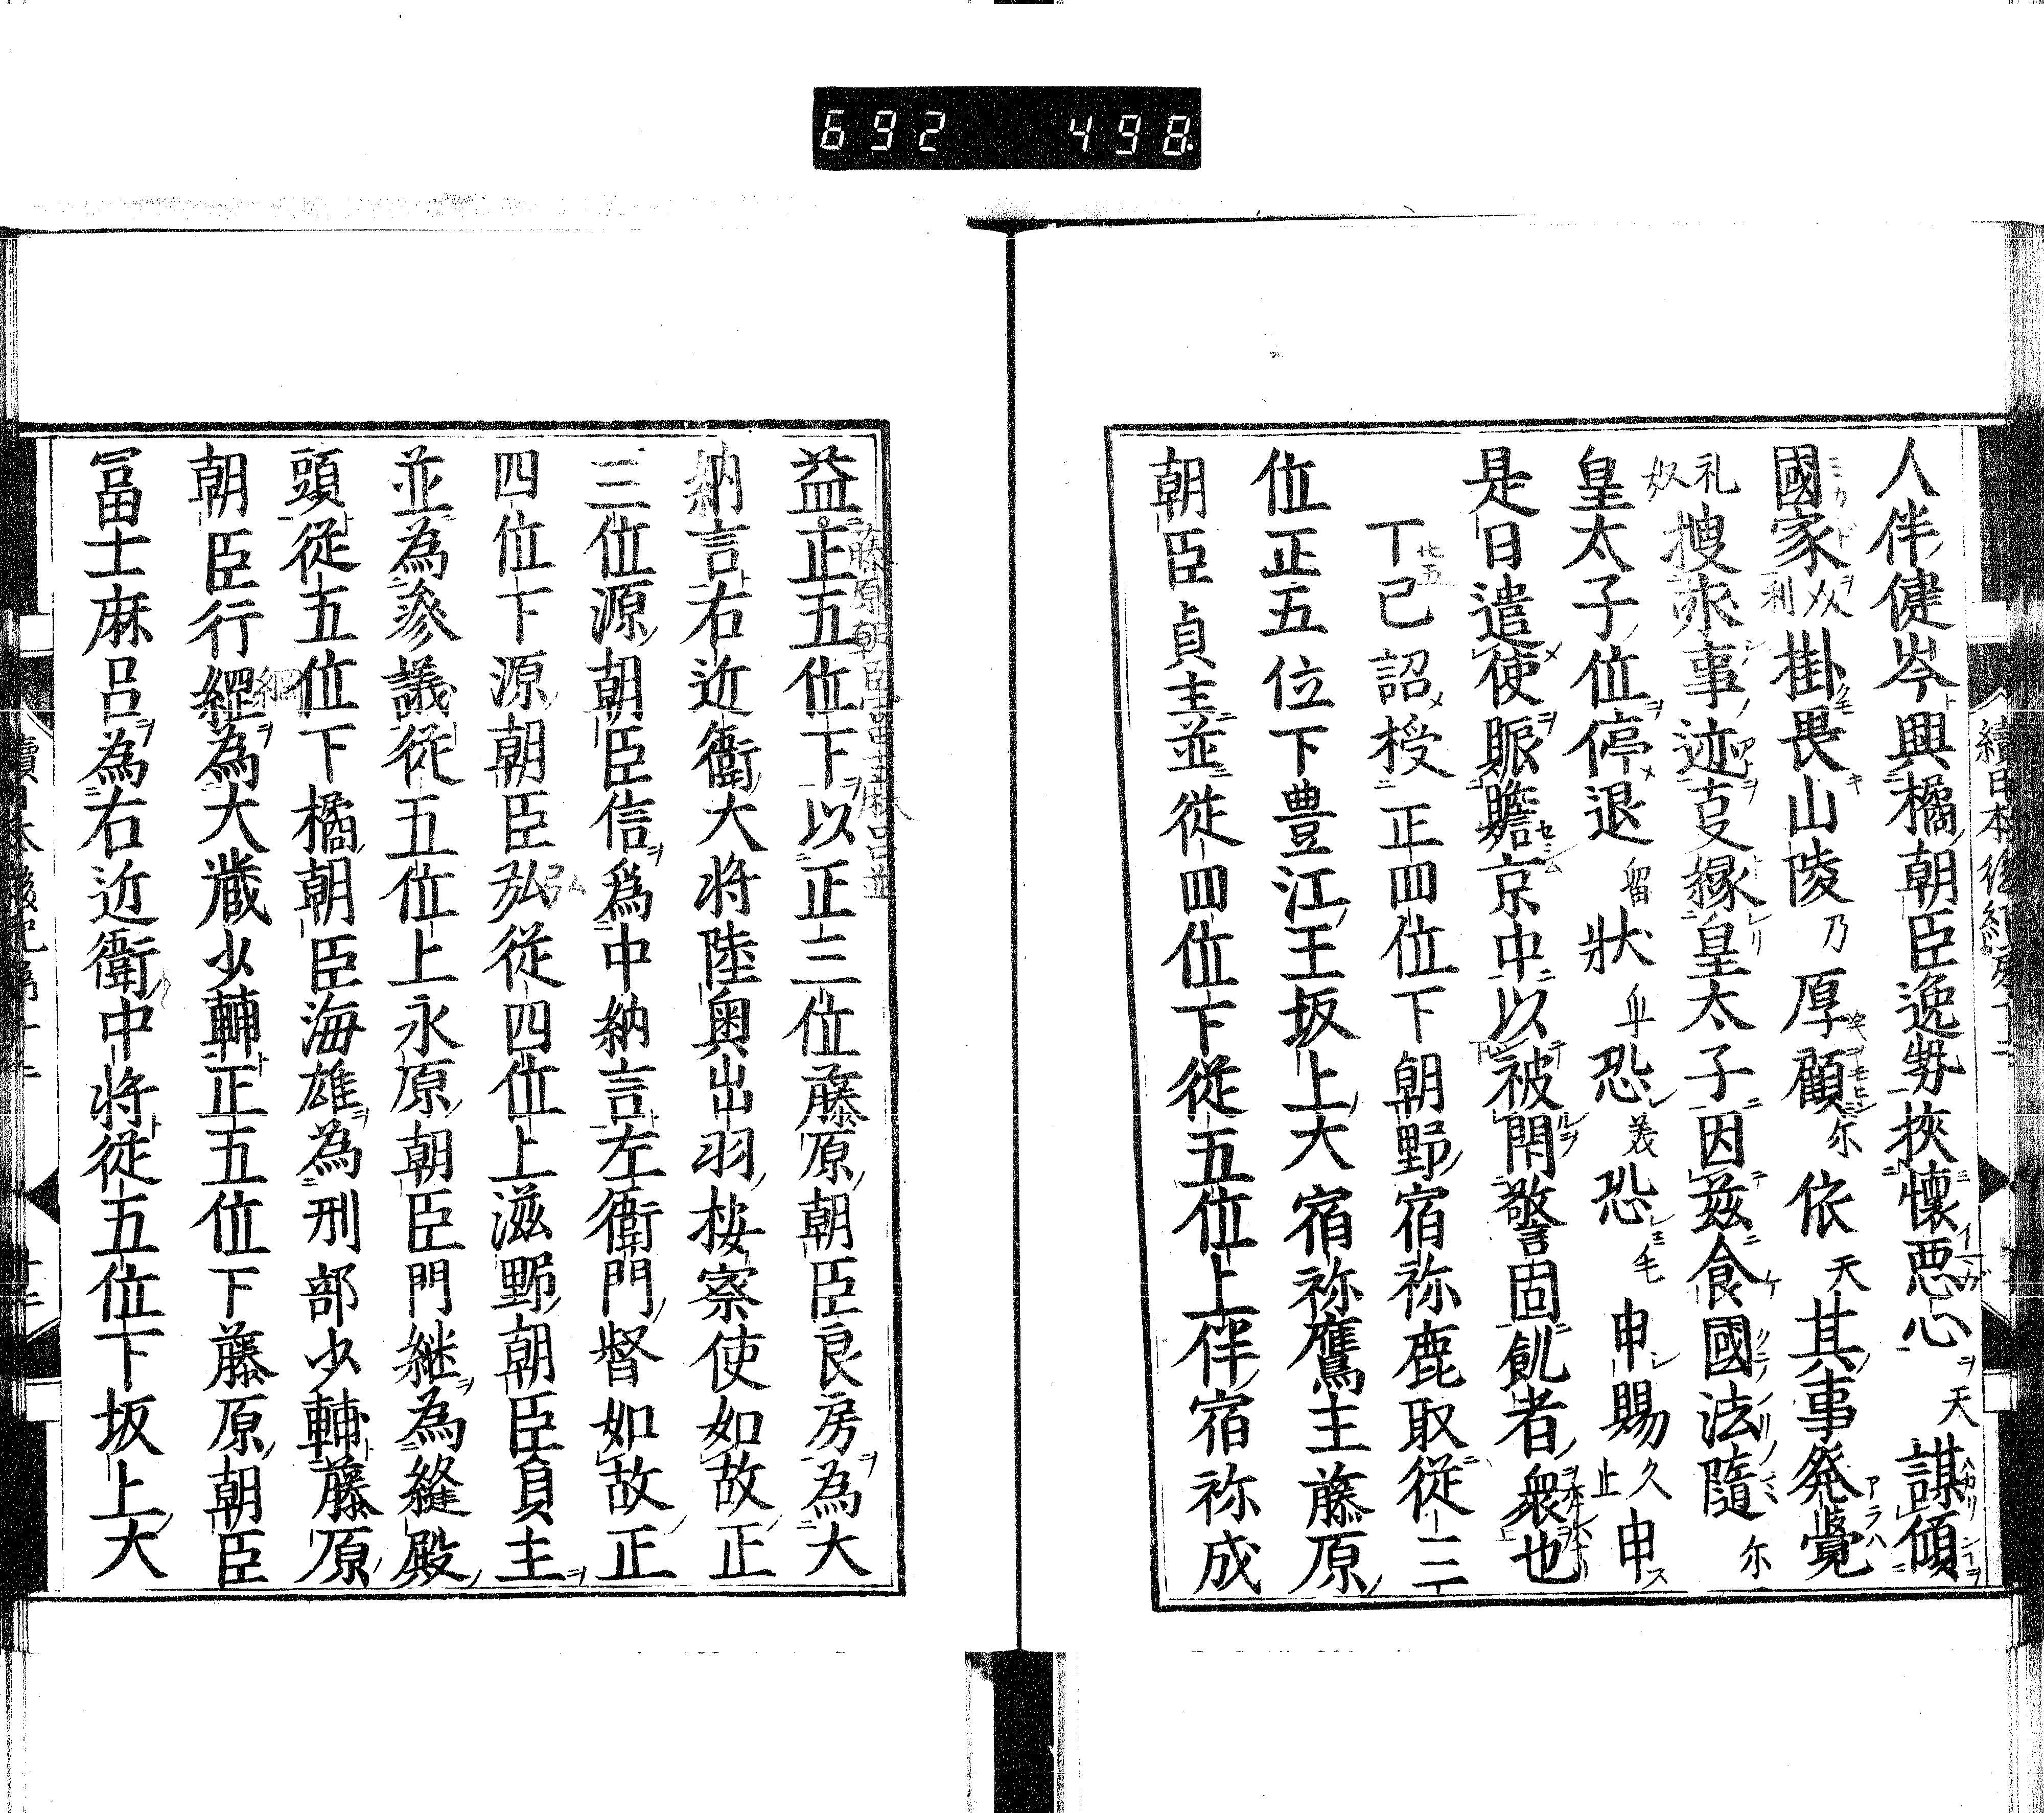 692 498
人伴健岑興橘朝臣逸勢挾懷悪心天謀傾
國家利掛畏山陵乃厚顧尓依天其事発覺
奴礼捜求事迹支緣皇太子因茲食國法隨尓
皇太子位停退留狀恐美恐毛申賜久止申
是日遣使賑贍京中以被閇警固飢者衆也
丁已詔授正四位下朝野宿祢鹿取從三
位正五位下豊江王坂上大宿祢鷹主藤原
朝臣貞主並從四位下從五位上伴宿祢成
益正五位下以正三位藤原朝臣良房為大
藤原朝臣冨士麻呂並
納言右近衛大将陸奥出羽按察使如故正
三位源朝臣信爲中納言左衛門督如故正
四位下源朝臣弘從四位上滋野朝臣貞主
並為參議從五位上永原朝臣門継為縫殿
頭從五位下橘朝臣海雄為刑部少輔藤原
朝臣行縄為大蔵少輔正五位下藤原朝臣
冨士麻呂為右近衛中将從五位下坂上大